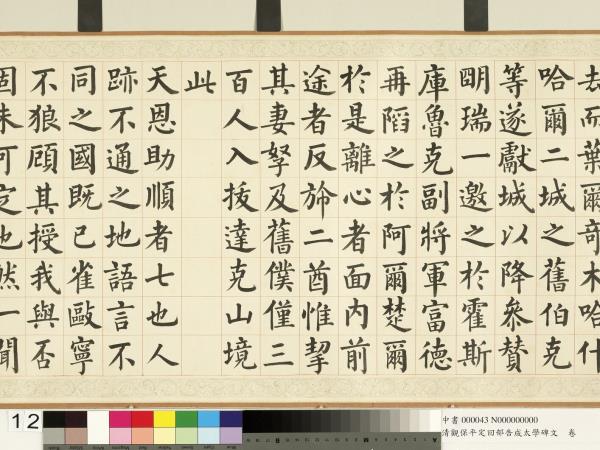 去而葉爾奇木哈什
哈爾二城之舊伯克
等遂獻城以降參贊
明瑞一邀之於霍斯
庫魯克副將軍富德
再陷之於阿爾楚爾
於是離心者面內前
途者反斾二酋惟挈
其妻孥及舊僕僅三
百人入拔達克山境
此
天恩助順者七也人
跡不通之地語言不
同之國既已雀毆寧
不狼顧其授我與否
固未可定也然一聞
12
中書 000043 N000000000
清觀保平定回部告成太學碑文 卷